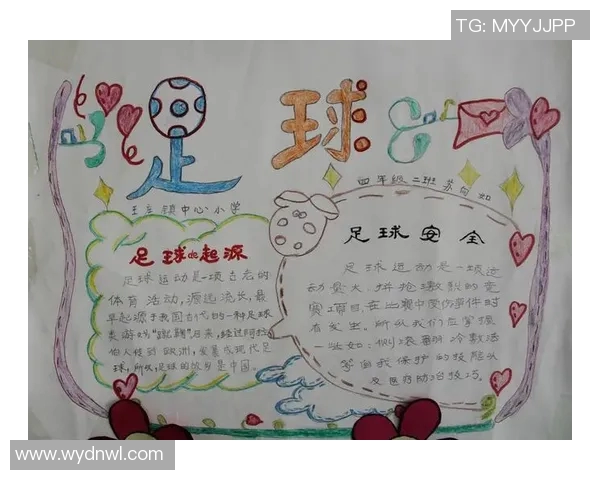 TG: MYYJJPP
足球
四年级二班 苏
王庄镇中心小学
足球的起源
足球运动是一项古老的
体育活动,源远流长,最
早起源于我国古代的一种足球
类游戏"蹴鞠"后来,经过阿拉
伯人传到欧洲,发展成现代足
球,所以,足球的故乡是中国。
足球安全
足球运动是一项运
动量大、拼抢激烈的竞
赛项目,在比赛中受伤事件时
有发生。所以我们应掌握
一些如:侧滚翻
自我保护的技能以
及医疗防治技巧。
www.wydnwl.com